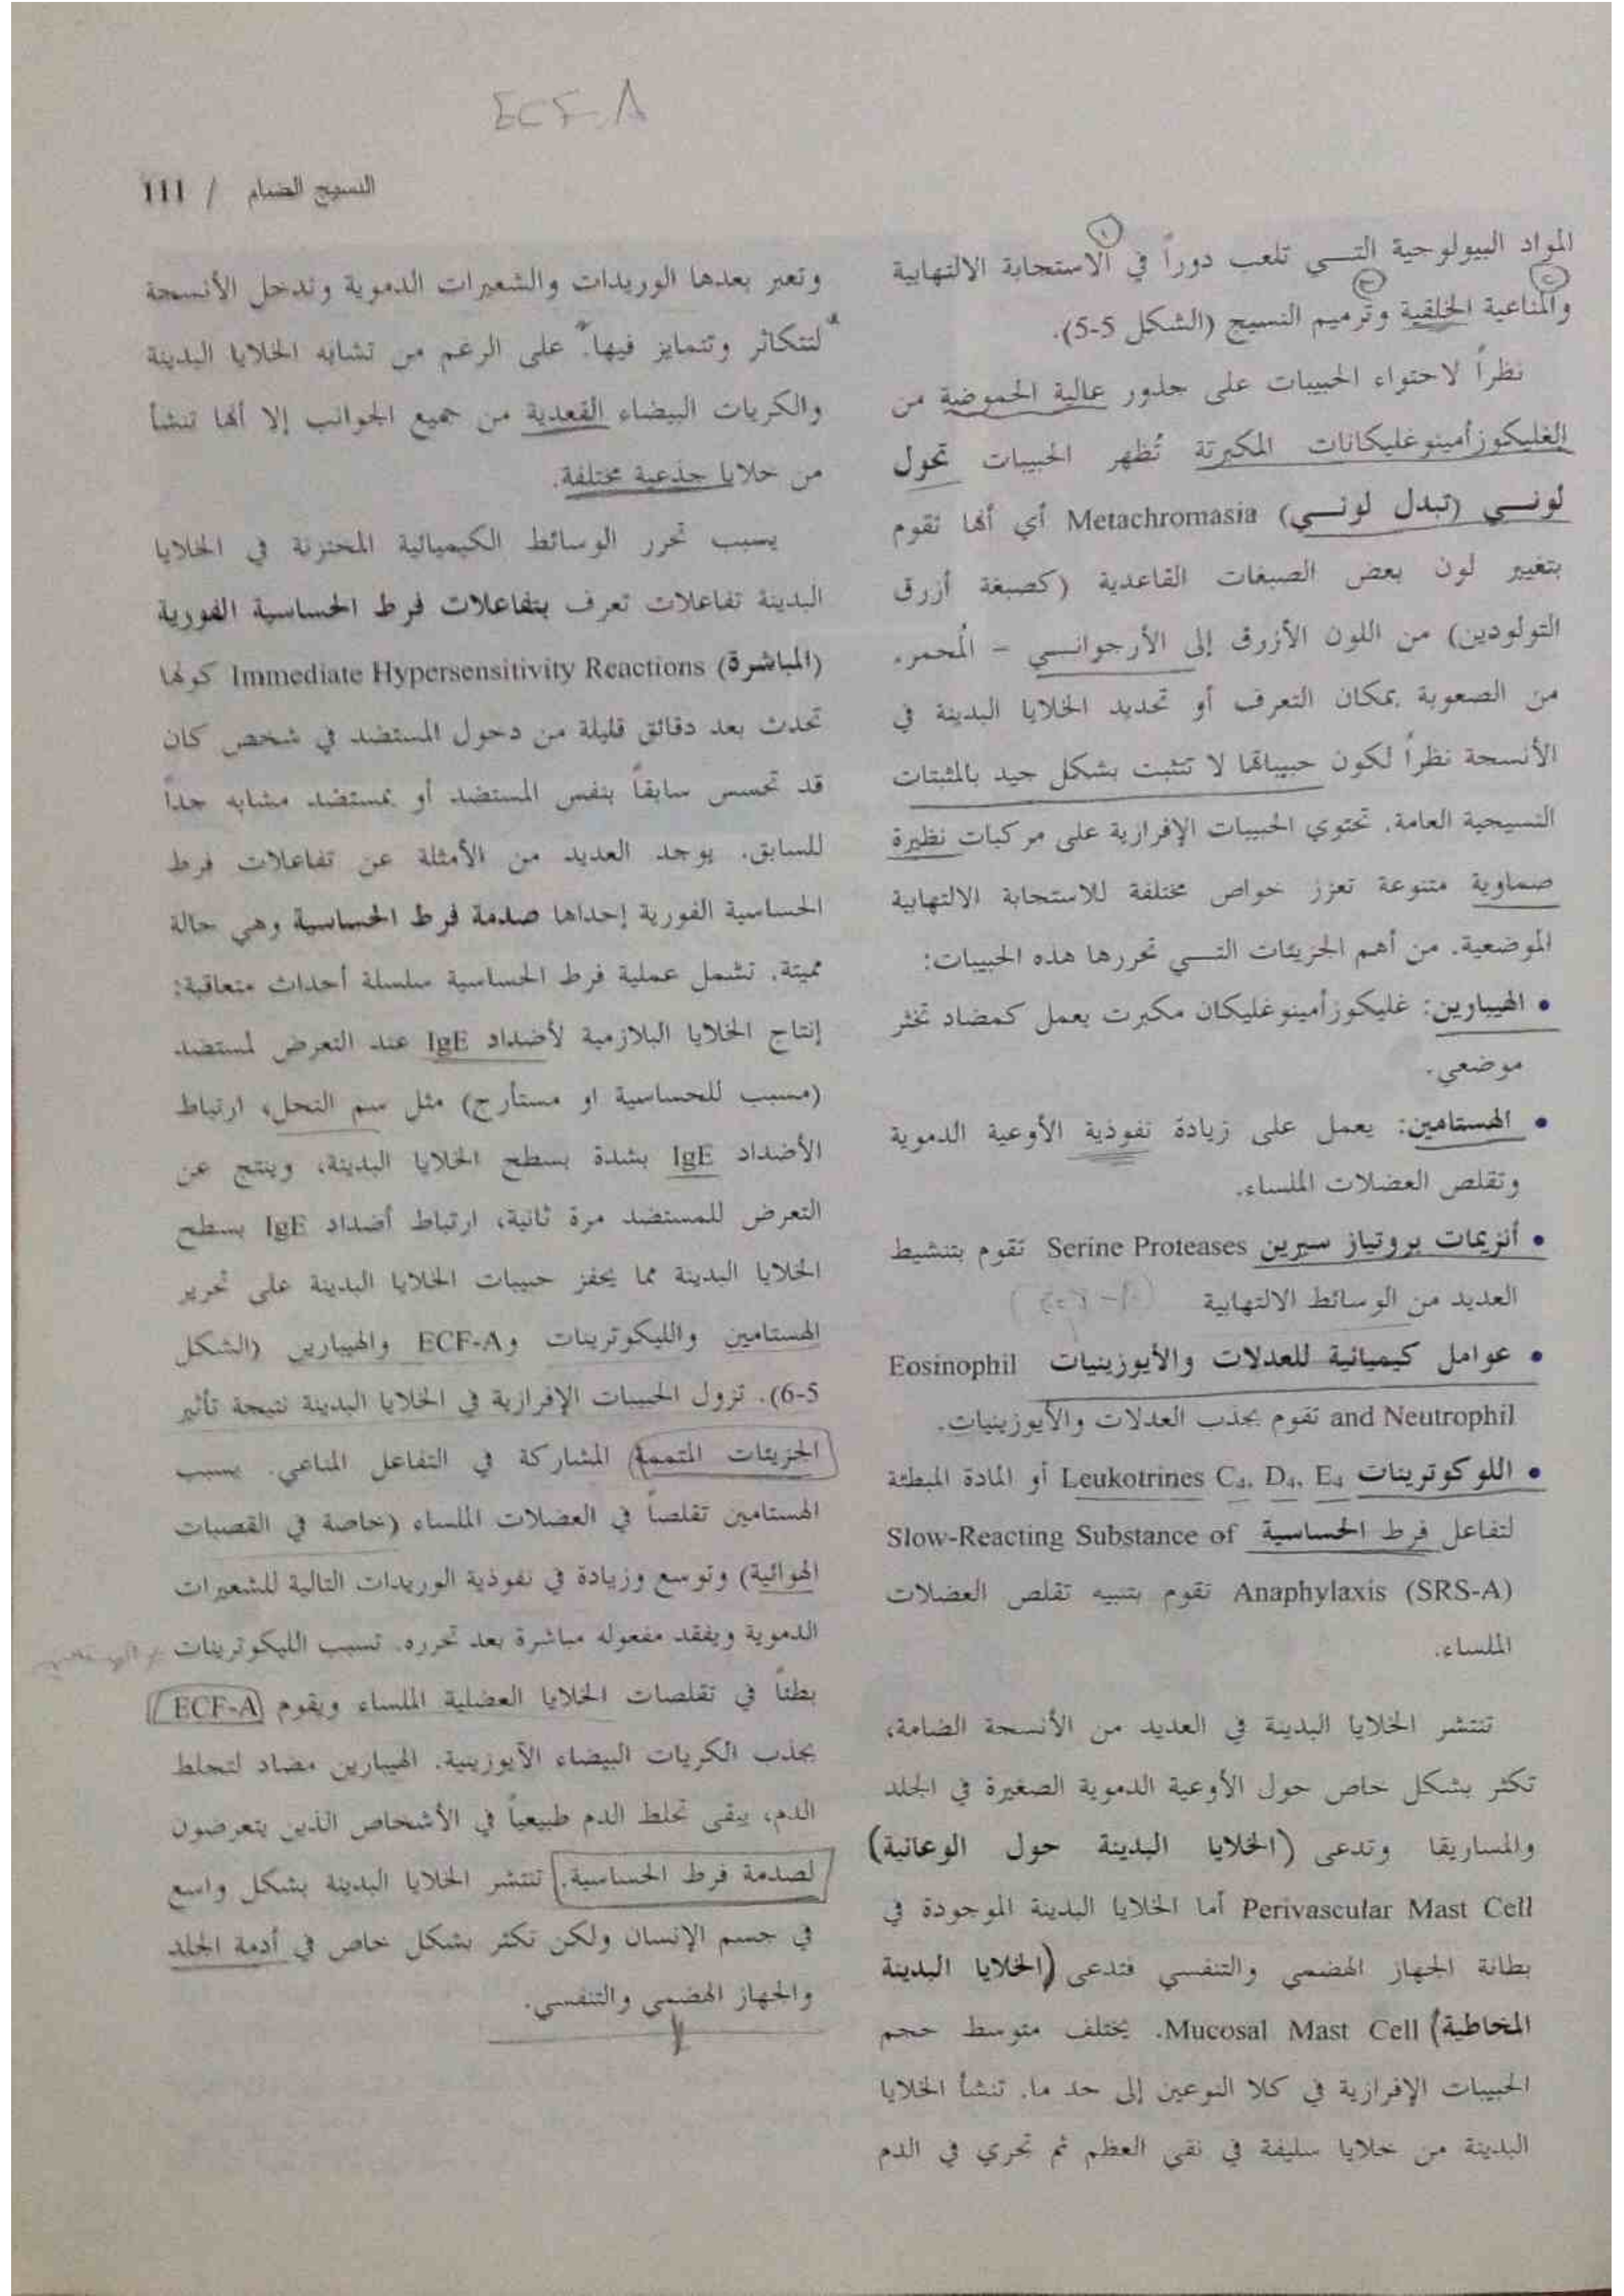 ECF-A
النسيج الضام / 111
المواد البيولوجية التـــي تلعب دوراً في الاستجابة الالتهابية
والمناعية الخلقية وترميم النسيج (الشكل 5-5).
نظراً لاحتواء الحبيبات على جذور عالية الحموضة من
الغليكوزأمينوغليكانات المكبرتة تُظهر الحبيبات تحول
لونـــي (تبدل لونـــي) Metachromasia أي أنها تقوم
بتغيير لون بعض الصبغات القاعدية (كصبغة أزرق
التولودين) من اللون الأزرق إلى الأرجوانـــي – المُحمر.
من الصعوبة بمكان التعرف أو تحديد الخلايا البدينة في
الأنسجة نظراً لكون حبيباتها لا تتثبت بشكل جيد بالمثبتات
النسيجية العامة. تحتوي الحبيبات الإفرازية على مركبات نظيرة
صماوية متنوعة تعزز خواص مختلفة للاستجابة الالتهابية
الموضعية. من أهم الجزيئات التـــي تحررها هذه الحبيبات:
• الهيبارين: غليكوزأمينوغليكان مكبرت يعمل كمضاد تخثر
موضعي.
• الهستامين: يعمل على زيادة نفوذية الأوعية الدموية
وتقلص العضلات الملساء.
• أنزيمات بروتياز سيرين Serine Proteases تقوم بتنشيط
العديد من الوسائط الالتهابية
• عوامل كيميائية للعدلات والأيوزينيات Eosinophil
and Neutrophil تقوم بجذب العدلات والأيوزينيات.
• اللوكوترينات Leukotrines C₄, D₄, E₄ أو المادة المبطئة
لتفاعل فرط الحساسية Slow-Reacting Substance of
Anaphylaxis (SRS-A) تقوم بتنبيه تقلص العضلات
الملساء.
تنتشر الخلايا البدينة في العديد من الأنسجة الضامة،
تكثر بشكل خاص حول الأوعية الدموية الصغيرة في الجلد
والمساريقا وتدعى (الخلايا البدينة حول الوعائية)
Perivascular Mast Cell أما الخلايا البدينة الموجودة في
بطانة الجهاز الهضمي والتنفسي فتدعى (الخلايا البدينة
المخاطية) Mucosal Mast Cell. يختلف متوسط حجم
الحبيبات الإفرازية في كلا النوعين إلى حد ما. تنشأ الخلايا
البدينة من خلايا سليفة في نقي العظم ثم تجري في الدم
وتعبر بعدها الوريدات والشعيرات الدموية وتدخل الأنسجة
لتتكاثر وتتمايز فيها. على الرغم من تشابه الخلايا البدينة
والكريات البيضاء القعدية من جميع الجوانب إلا أنها تنشأ
من خلايا جذعية مختلفة.
يسبب تحرر الوسائط الكيميائية المختزنة في الخلايا
البدينة تفاعلات تعرف بتفاعلات فرط الحساسية الفورية
(المباشرة) Immediate Hypersensitivity Reactions كونها
تحدث بعد دقائق قليلة من دخول المستضد في شخص كان
قد تحسس سابقاً بنفس المستضد أو بمستضد مشابه جداً
للسابق. يوجد العديد من الأمثلة عن تفاعلات فرط
الحساسية الفورية إحداها صدمة فرط الحساسية وهي حالة
مميتة. تشمل عملية فرط الحساسية سلسلة أحداث متعاقبة:
إنتاج الخلايا البلازمية لأضداد IgE عند التعرض لمستضد
(مسبب للحساسية او مستأرج) مثل سم النحل، ارتباط
الأضداد IgE بشدة بسطح الخلايا البدينة، وينتج عن
التعرض للمستضد مرة ثانية، ارتباط أضداد IgE بسطح
الخلايا البدينة مما يحفز حبيبات الخلايا البدينة على تحرير
الهستامين والليكوترينات وECF-A والهيبارين (الشكل
5-6). تزول الحبيبات الإفرازية في الخلايا البدينة نتيجة تأثير
الجزيئات المتممة المشاركة في التفاعل المناعي. يسبب
الهستامين تقلصاً في العضلات الملساء (خاصة في القصبات
الهوائية) وتوسع وزيادة في نفوذية الوريدات التالية للشعيرات
الدموية ويفقد مفعوله مباشرة بعد تحرره. تسبب الليكوترينات
بطئاً في تقلصات الخلايا العضلية الملساء ويقوم ECF-A
بجذب الكريات البيضاء الآيوزينية. الهيبارين مضاد لتجلط
الدم، يبقى تجلط الدم طبيعياً في الأشخاص الذين يتعرضون
لصدمة فرط الحساسية. تنتشر الخلايا البدينة بشكل واسع
في جسم الإنسان ولكن تكثر بشكل خاص في أدمة الجلد
والجهاز الهضمي والتنفسي.